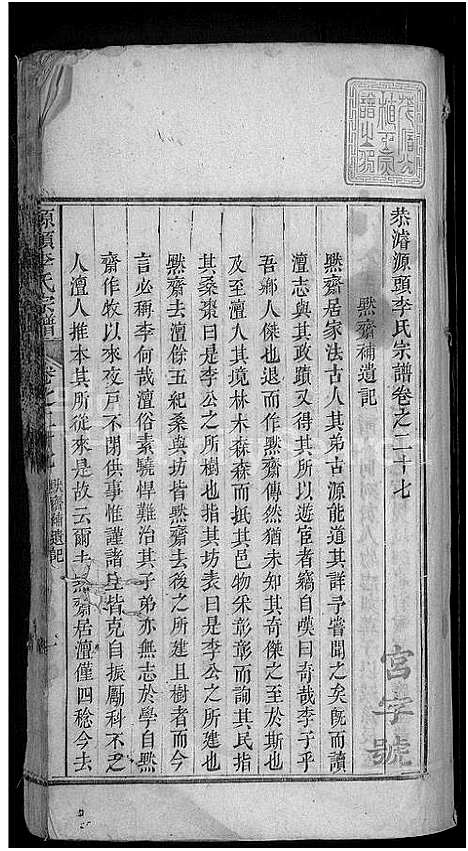 恭濬源頭李氏宗譜卷之二十七
㷋齋補遺記
㷋齋居家法古人其弟古源能道其詳予嘗聞之矣旣而讀
澶志與其政蹟又得其所以遊宦者竊自嘆曰奇哉李子乎
吾鄉人傑也退而作㷋齋傳然猶未知其奇傑之至於斯也
及至澶人其境林木森森而抵其邑物采彰彰而詢其民指
其桑棗曰是李公之所樹也指其坊表曰是李公之所建也
㷋齋去澶餘五紀桑與坊皆㷋齋去後之所建且樹者而今
言必稱李何哉澶俗素驍悍難治其子弟亦無志於學自㷋
齋作牧以來夜戸不閉供事惟謹諸生皆克自振勵科不乏
人澶人推本其所從來是故云爾㷋齋居澶僅四稔今去
源頭李氏宗譜
卷之二十七
㷋齋補遺記
一
宮字號